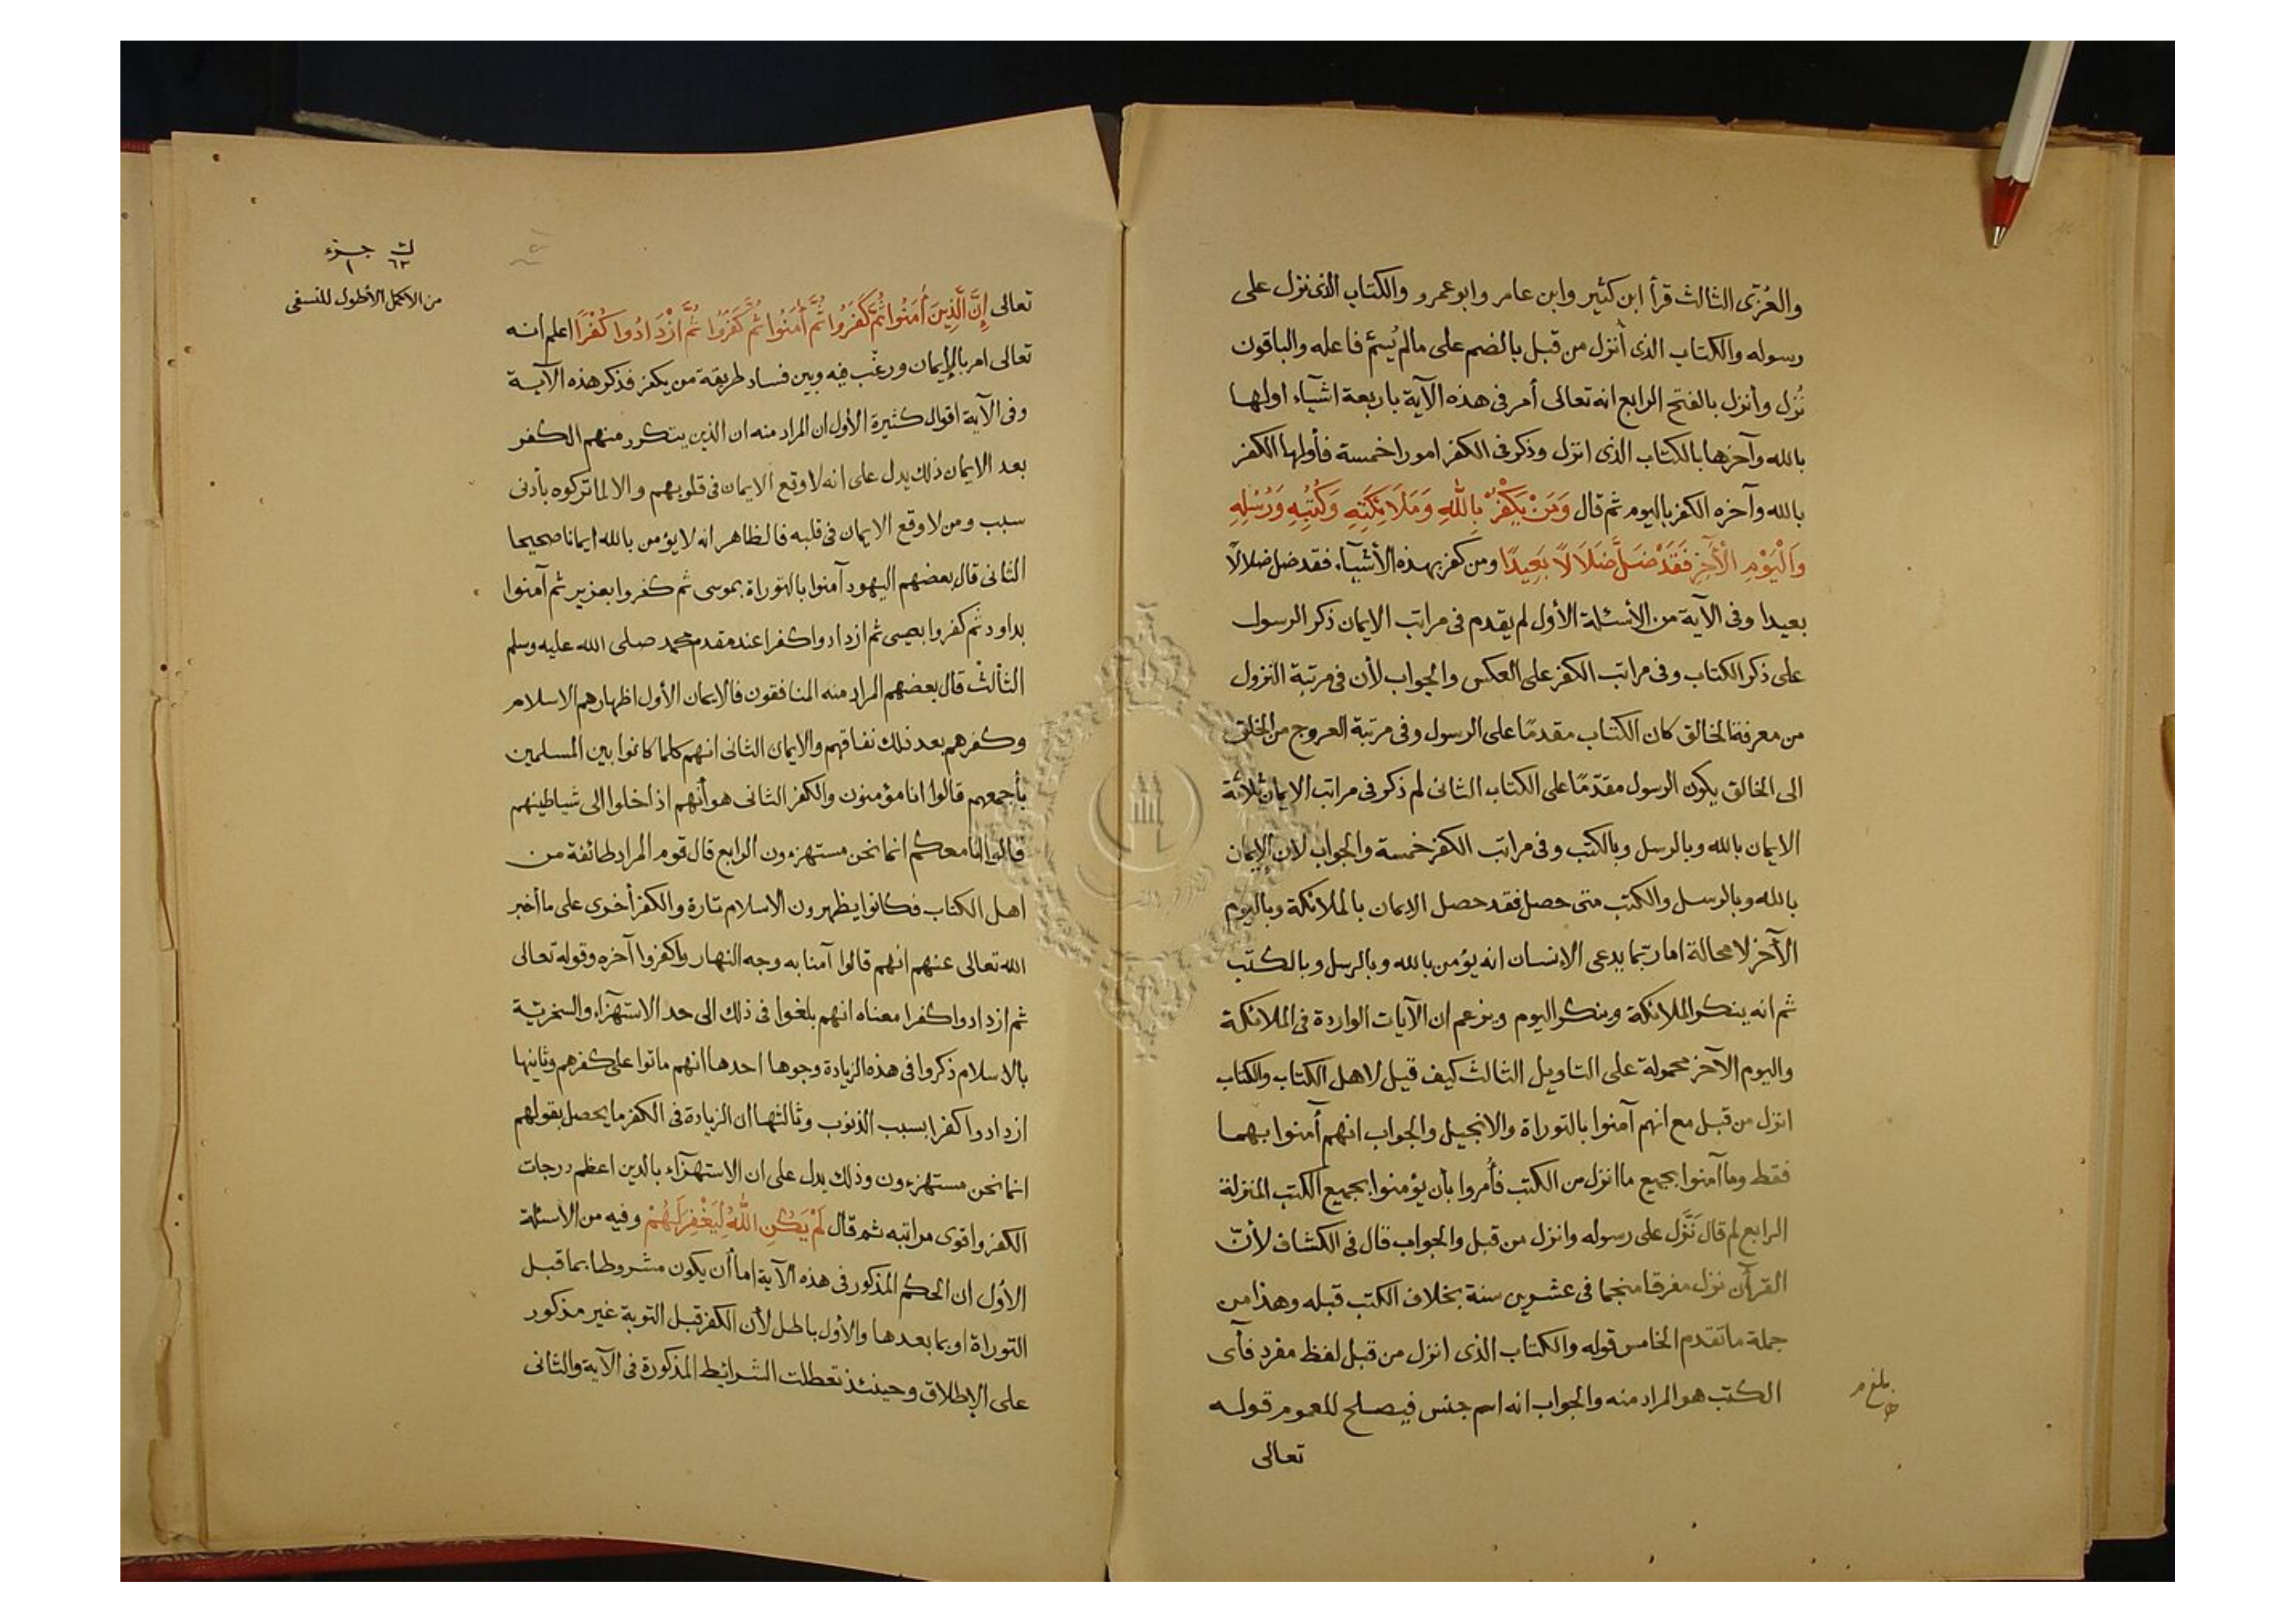 والعُزّى الثالث قرأ ابن كثير وابن عامر وابو عمرو والكتاب الذى نزل على
رسوله والكتاب الذى أنزل من قبل بالضم على مالم يُسمَّ فاعله والباقون
نُزل وأنزل بالفتح الرابع انه تعالى أمر فى هذه الآية باربعة اشيآء اولها
بالله وآخرها بالكتاب الذى انزل وذكر فى الكفر امورا خمسة فأولها الكفر
بالله وآخره الكفر باليوم ثم قال وَمَنْ يَكْفُرْ بِاللّٰهِ وَمَلَائِكَتِهِ وَكُتُبِهِ وَرُسُلِهِ
وَالْيَوْمِ الْآخِرِ فَقَدْ ضَلَّ ضَلَالًا بَعِيدًا ومن كفر بهذه الأشيآء فقد ضل ضلالًا
بعيدا وفى الآية من الأسئلة الأول لم يقدم فى مراتب الايمان ذكر الرسول
على ذكر الكتاب وفى مراتب الكفر على العكس والجواب لأن فى مرتبة النزول
من معرفة الخالق كان الكتاب مقدمًا على الرسول وفى مرتبة العروج من الخلق
الى الخالق يكون الرسول مقدّمًا على الكتاب الثانى لم ذكر فى مراتب الايمان ثلاثة
الايمان بالله وبالرسل وبالكتب وفى مراتب الكفر خمسة والجواب لان الإيمان
بالله وبالرسل والكتب متى حصل فقد حصل الايمان بالملائكة وباليوم
الآخر لا محالة اما ربّما يدعى الانسان انه يؤمن بالله وبالرسل وبالكتب
ثم انه ينكر الملائكة وينكر اليوم ويزعم ان الآيات الواردة فى الملائكة
واليوم الآخر محمولة على التاويل الثالث كيف قيل لاهل الكتاب والكتاب
انزل من قبل مع انهم آمنوا بالتوراة والانجيل والجواب انهم أمنوا بهما
فقط وما آمنوا بجميع ما انزل من الكتب فأُمروا بأن يؤمنوا بجميع الكتب المنزلة
الرابع لم قال نَزَّل على رسوله وانزل من قبل والجواب قال فى الكشاف لأنّ
القرآن نزل مفرقا منجما فى عشرين سنة بخلاف الكتب قبله وهذا من
جملة ما تقدم الخامس قوله والكتاب الذى انزل من قبل لفظ مفرد فأى
الكتب هو المراد منه والجواب انه اسم جنس فيصلح للعموم قوله
تعالى
بلغ م
ك ٦٢ جزء ١
من الاكمل الأطول للنسفى
تعالى إِنَّ الَّذِينَ أٰمَنُوا ثُمَّ كَفَرُوا ثُمَّ أٰمَنُوا ثُمَّ كَفَرُوا ثُمَّ ازْدَادُوا كُفْرًا اعلم انه
تعالى امر بالإيمان ورغّب فيه وبين فساد طريقة من يكفر فذكر هذه الآية
وفى الآية اقوال كثيرة الأول ان المراد منه ان الذين يتكرر منهم الكفر
بعد الايمان ذلك يدل على انه لا وقع الايمان فى قلوبهم والا لما تركوه بأدنى
سبب ومن لا وقع الايمان فى قلبه فالظاهر انه لا يؤمن بالله ايمانا صحيحا
الثانى قال بعضهم اليهود آمنوا بالتوراة بموسى ثم كفروا بعزير ثم آمنوا
بداود ثم كفروا بعيسى ثم ازدادوا كفرا عند مقدم محمد صلى الله عليه وسلم
الثالث قال بعضهم المراد منه المنافقون فالايمان الأول اظهارهم الاسلام
وكفرهم بعد ذلك نفاقهم والايمان الثانى انهم كلما كانوا بين المسلمين
بأجمعهم قالوا انا مؤمنون والكفر الثانى هو أنهم اذا خلوا الى شياطينهم
قالوا انا معكم انما نحن مستهزءون الرابع قال قوم المراد طائفة من
اهل الكتاب فكانوا يظهرون الاسلام تارة والكفر أخرى على ما أخبر
الله تعالى عنهم انهم قالوا آمنا به وجه النهار واكفروا آخره وقوله تعالى
ثم ازدادوا كفرا معناه انهم بلغوا فى ذلك الى حد الاستهزآء والسخرية
بالاسلام ذكروا فى هذه الزيادة وجوها احدها انهم ماتوا على كفرهم وثانيها
ازدادوا كفرا بسبب الذنوب وثالثها ان الزيادة فى الكفر ما يحصل بقولهم
انما نحن مستهزءون وذلك يدل على ان الاستهزآء بالدين اعظم درجات
الكفر واقوى مراتبه ثم قال لَمْ يَكُنِ اللّٰهُ لِيَغْفِرَ لَهُمْ وفيه من الأسئلة
الأول ان الحكم المذكور فى هذه الآية اما أن يكون مشروطا بما قبل
التوراة او بما بعدها والأول باطل لأن الكفر قبل التوبة غير مذكور
على الإطلاق وحينئذ تعطلت الشرائط المذكورة فى الآية والثانى